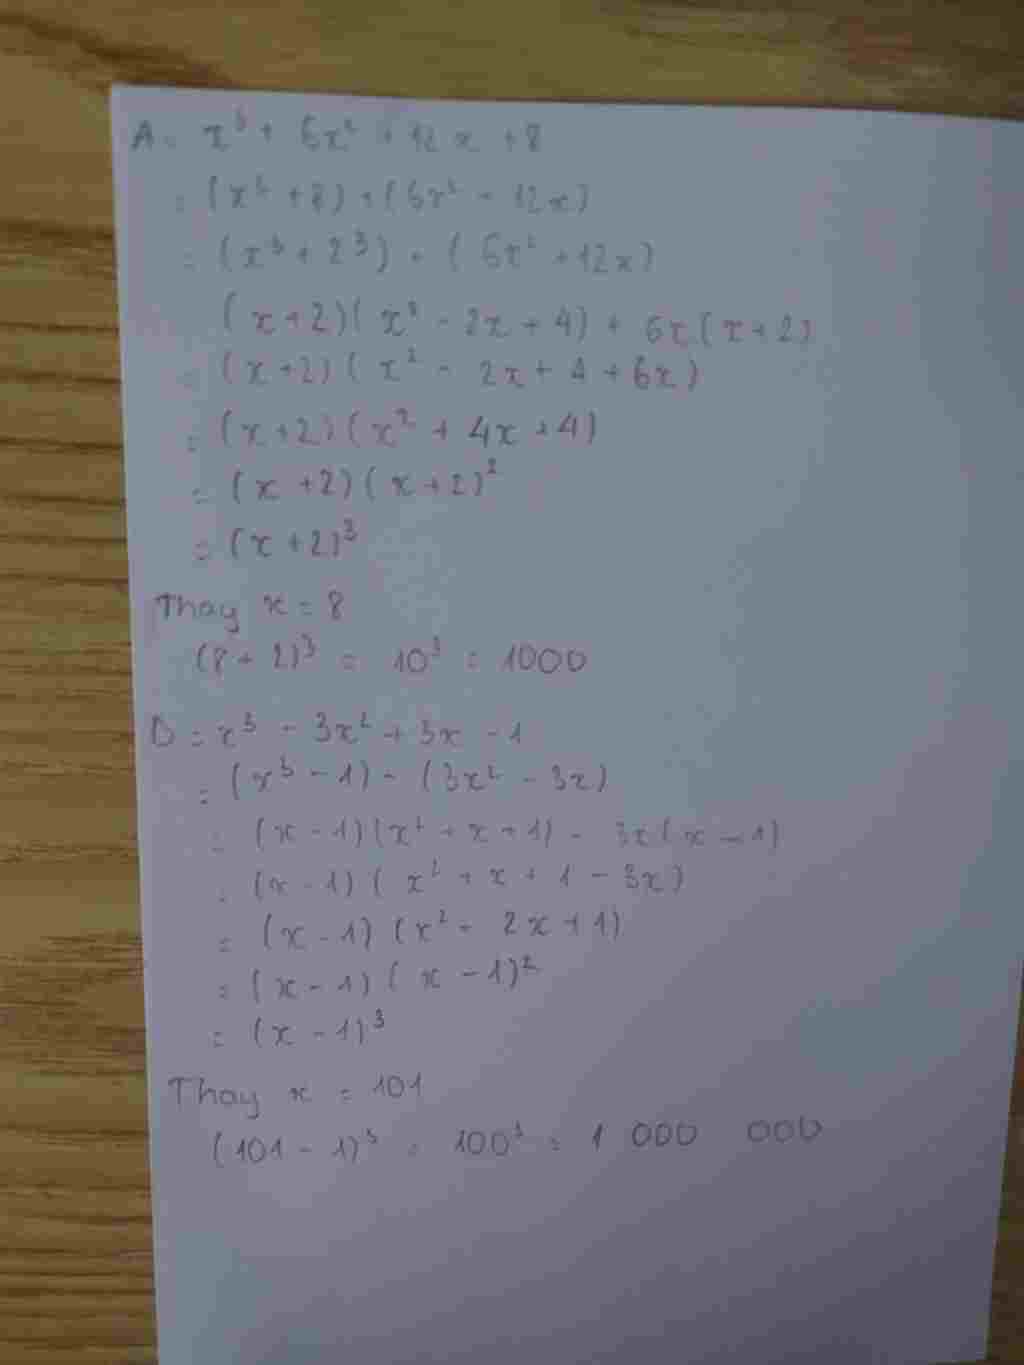 A = x³ + 6x² + 12x + 8
= (x³ + 8) + (6x² + 12x)
= (x³ + 2³) + (6x² + 12x)
(x + 2)(x² - 2x + 4) + 6x(x + 2)
= (x + 2)(x² - 2x + 4 + 6x)
= (x + 2)(x² + 4x + 4)
= (x + 2)(x + 2)²
= (x + 2)³
Thay x = 8
(8 + 2)³ = 10³ = 1000
D = x³ - 3x² + 3x - 1
= (x³ - 1) - (3x² - 3x)
= (x - 1)(x² + x + 1) - 3x(x - 1)
= (x - 1)(x² + x + 1 - 3x)
= (x - 1)(x² - 2x + 1)
= (x - 1)(x - 1)²
= (x - 1)³
Thay x = 101
(101 - 1)³ = 100³ = 1 000 000